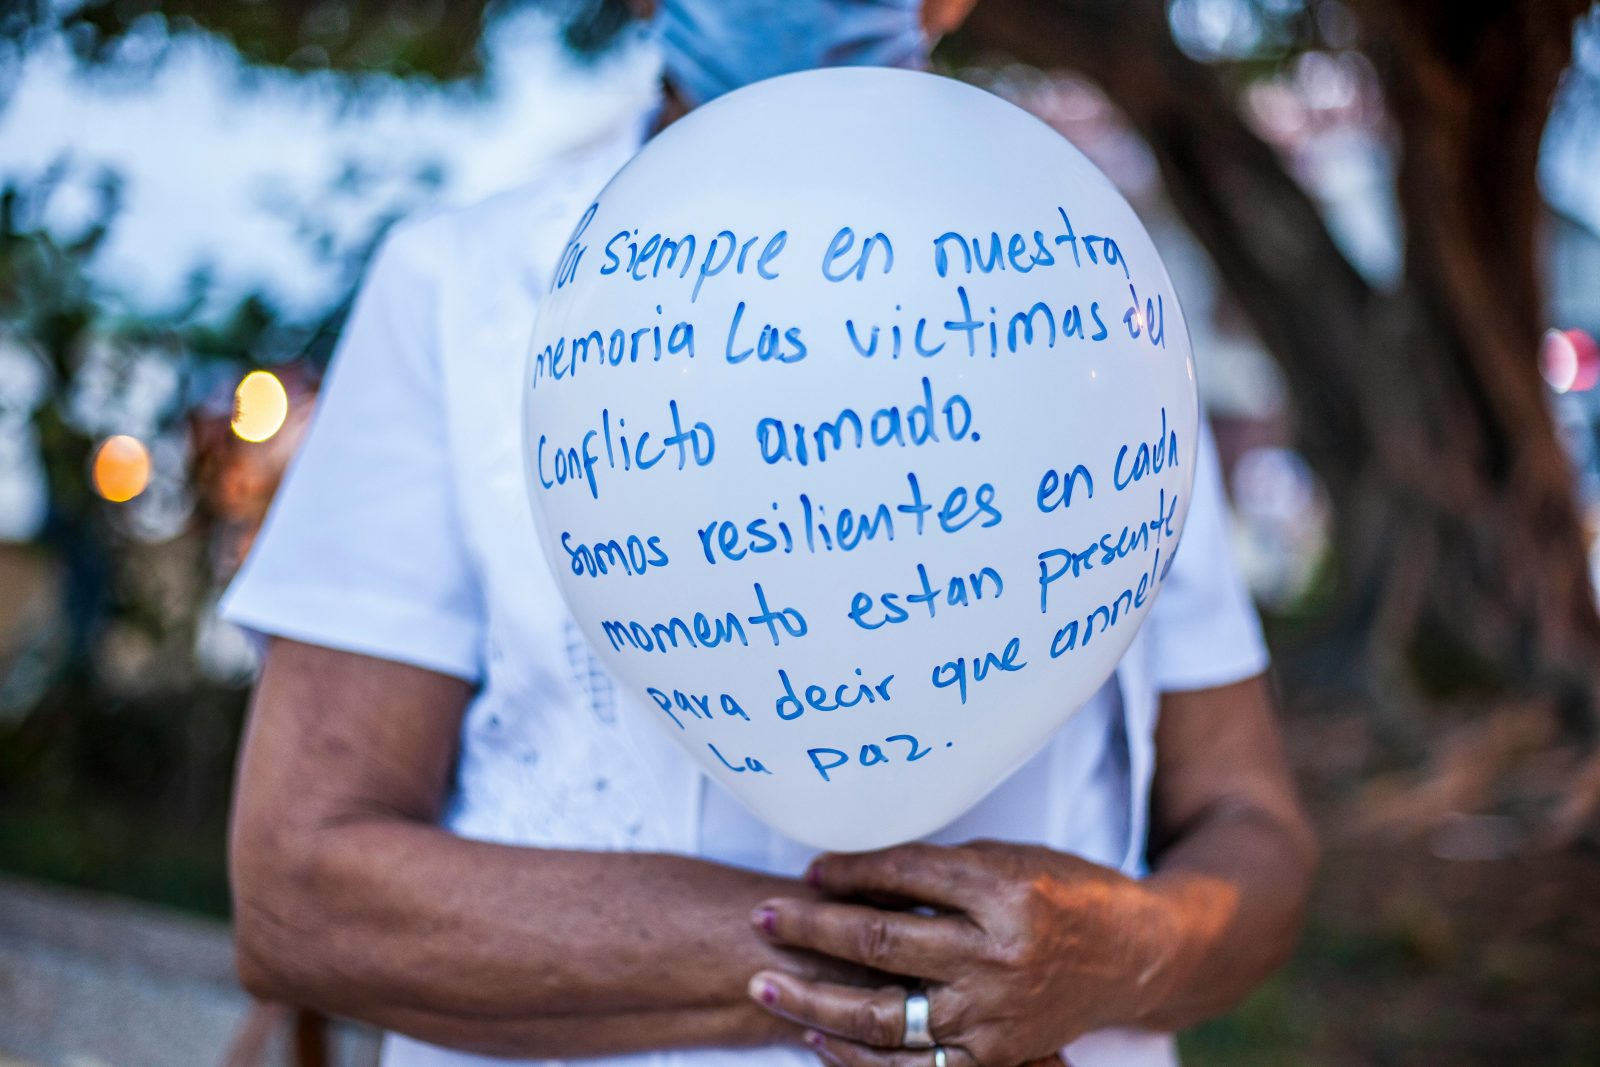 Por siempre en nuestra
memoria las victimas del
conflicto armado.
somos resilientes en cada
momento estan presente
para decir que annela
la paz.